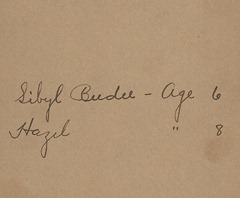 Sibyl Beedle - Age 6
Hazel " 8